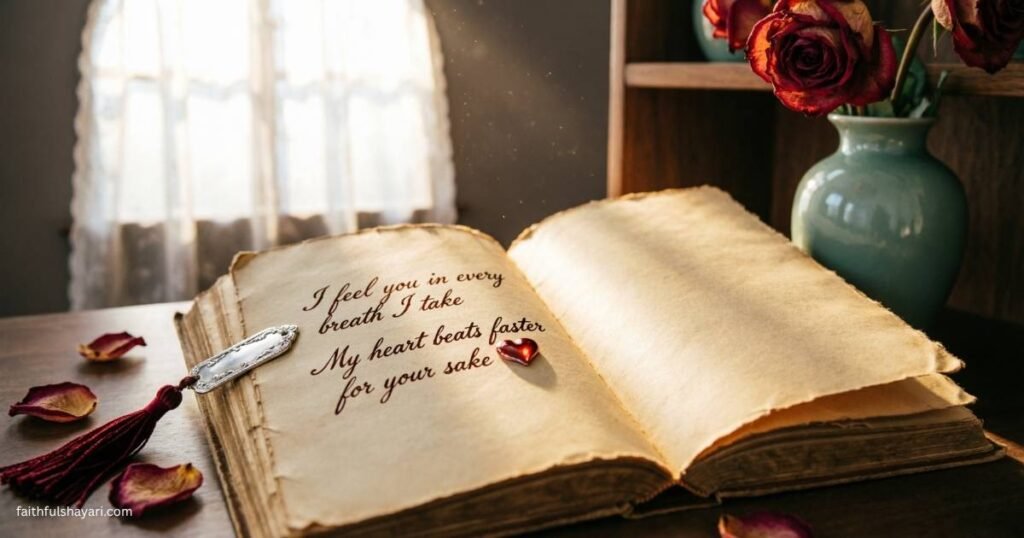 I feel you in every
breath I take
My heart beats faster
for your sake
faithfulshayari.com